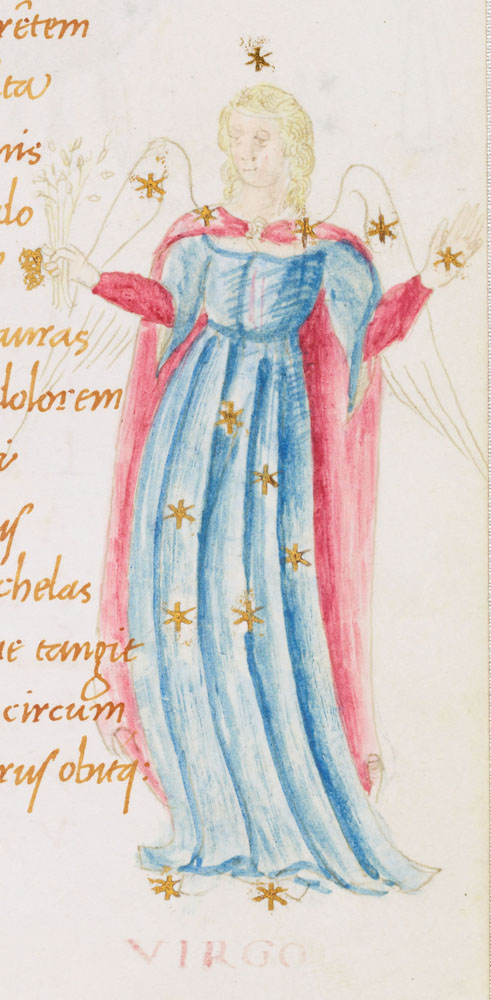 rêtem
ita
nis
do
auras
dolorem
i
us
chelas
ue tangit
circum
rus obitq:
VIRGO